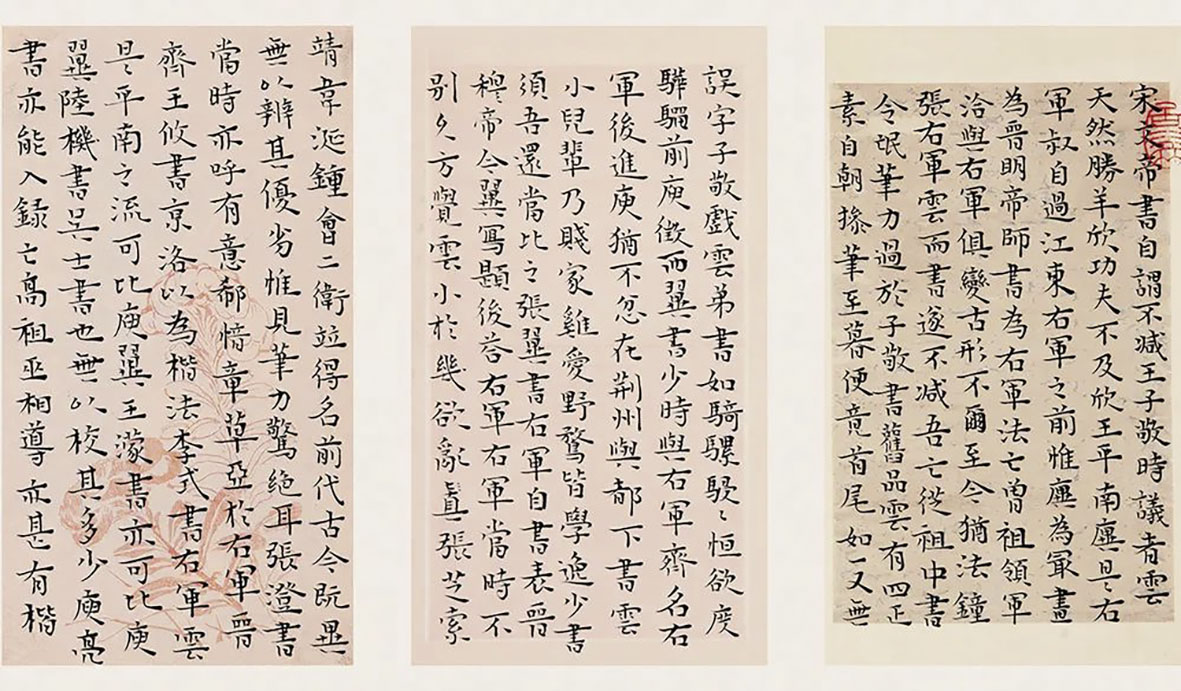 宋文帝書自謂不减王子敬時議者雲
天然勝羊欣功夫不及欣王平南廙是右
軍叔自過江東右軍之前惟廙為最畫
為晉明帝師書為右軍法亡曾祖領軍
洽與右軍俱變古形不爾至今猶法鐘
張右軍雲而書遂不减吾亡從祖中書
令珉筆力過於子敬書舊品雲有四疋
素自朝操筆至暮便竟首尾如一又無
誤字子敬戲雲弟書如騎騾駸〻恒欲度
驊騮前庾徴而翼書少時與右軍齊名右
軍後進庾猶不忿在荆州與都下書雲
小兒輩乃賤家雞愛野鶩皆學逸少書
須吾還當比之張翼書右軍自書表晉
穆帝令翼寫題後答右軍右軍當時不
別久方覺雲小於幾欲亂真張芝索
靖韋誕鍾會二衛竝得名前代古今既異
無以辨其優劣惟見筆力驚絶耳張澄書
當時亦呼有意郗愔章草亞於右軍晉
齊王攸書京洛以為楷法李式書右軍雲
是平南之流可比庾翼王濛書亦可比庾
翼陸機書吳士書也無以校其多少庾亮
書亦能入録亡高祖丞相導亦甚有楷